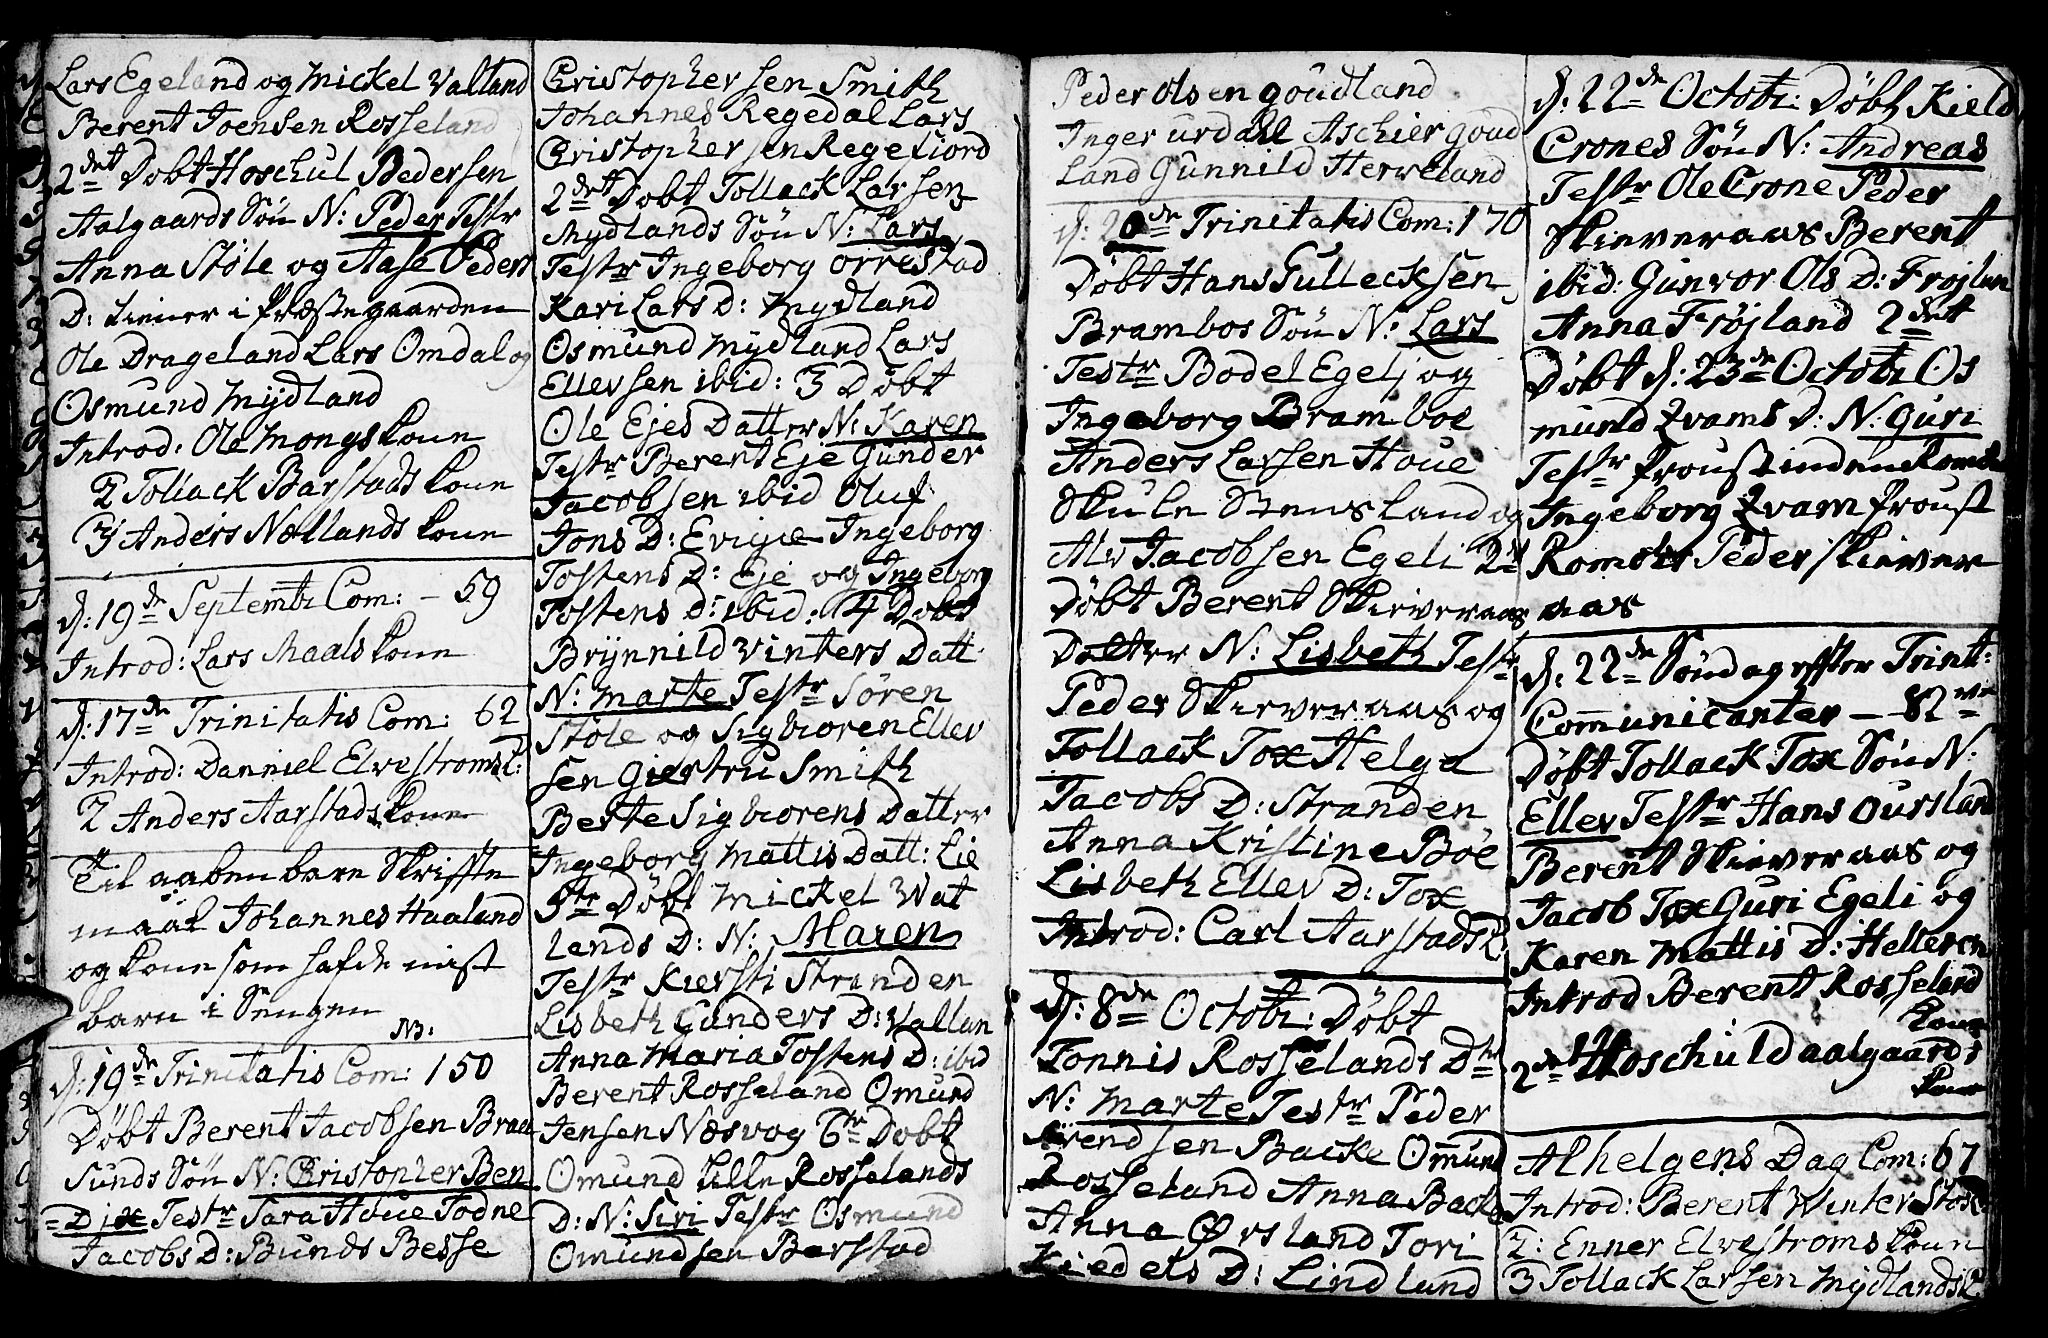 Lars Egeland og Mickel Valland
Berent Joensen Rosseland
2det Døbt Hoschul Pedersen
Aalgaards Søn N: Peder Testr
Anna Støle og Aase Peders
D: tiener i Præstegaarden
Ole Drageland Lars Omdal og
Osmund Mydland
Introd: Ole Mongs Kone
2 Tollack Barstads Kone
3 Anders Nællands Kone
d: 19de Septembr Com: - 59
Introd: Lars Maals Kone
d: 17de Trinitatis Com: 62
Introd: Danniel Elvestroms K:
2 Anders Aarstads Kone
Til aabenbare Skrifte
maal Johannes Haaland
og Kone som hafde mist
barn i Sengen
NB:
d: 19de Trinitatis Com: 150
Døbt Berent Jacobsen Braa
Sunds Søn N: Christopher Ben
Testr Sara Houe Todne
Jacobs D: Bunds Besse
Christophersen Smith
Johannes Regedal Lars
Christophersen Regefiord
2det Døbt Tollack Larsen
Mydlands Søn N: Lars
Testr Ingeborg Orrestad
Kari Lars D: Mydland
Osmund Mydland Lars
Ellevsen ibid: 3 Døbt
Ole Ejes Datter N: Karen
Testr Berent Eje Gunder
Jacobsen ibid Oluf
Jons D: Evigie Ingeborg
Tostens D: Eje og Ingeborg
Tostens D: ibid: 4 Døbt
Brynnild Vinters Datt
N: Marte Testr Søren
Støle og Sigbioren Ellev
sen Giertru Smith
Berte Sigbiorens Datter
Ingeborg Mattis Datt: Lie
5te Døbt Mickel Wat
lands D: N: Maren
Testr Kiersti Stranden
Lisbeth Gunders D: Vallan
Anna Maria Tostens D: ibid
Berent Rosseland Omund
Jensen Næsvog 6te Døbt
Omund Lille Rosselands
D: N: Siri Testr Osmund
Omundsen Barstad
Peder Olsen Goudland
Inger Urdahl Aschier Goud
Land Gunnild Herveland
d: 20de Trinitatis Com: 170
Døbt Hans Tullecksen
Brambos Søn N: Lars
Testr Bodel Egelj og
Ingeborg Bramboe
Anders Larsen Houe
Skule Stensland og
Alv Jacobsen Egeli 2det
Døbt Berent Skieveraas
Datter N: Lisbeth Testr
Peder Skieveraas og
Tollack Tox Helga
Jacobs D: Stranden
Anna Kristine Böe
Lisbeth Ellev D: Tox
Introd: Carl Aarstads K:
d: 8de Octobr: Døbt
Tonnis Rosselands Dtr
N: Marte Testr Peder
Arendsen Backe Omund
Rosseland Anna Backe
Anna Ørsland Tori
Kiedels D: Lindland
d: 22de Octobr: Døbt Kield
Crones Søn N: Andreas
Testr Ole Crone Peder
Skieveraas Berent
ibid: Gunvor Ols D: Frøjlan
Anna Frøjland 2det
Døbt d: 23de Octobr Os
mund Qvams D: N: Guri
Testr
Ingeborg Qvam Proust
Peder Skiever
aas
d: 22de Søndag efter Trinit:
Communicanter - 82
Døbt Tollack Tox Søn N:
Ellev Testr Hans Oursland
Berent Skieveraas og
Jacob Tox Guri Egeli og
Karen Mattis D: Helleren
Introd Berent Rosseland
Kone
2de Hoschuld Aalgaards
Kone
Alhelgens Dag Com: 67
Introd: Berent Winters
2: Enner Elvestroms Kone
3 Tollack Larsen Mydlands K: